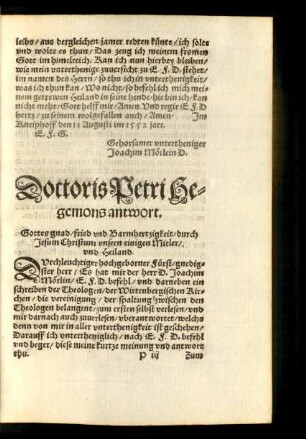 leibs/ aus dergleichen jamer redten künts/ ich solts
vnd wolts es thun/ Das zeug ich meinem fromen
Gott im himelreich. Kan ich nun hierbey bleiben/
wie mein vnterthenige zuuersicht zu E. F. D. stehet/
im namen des Herrn/ so thu ich in vnterthenigkeit/
was ich thun kan/ Wo nicht/ so befehl ich mich mei-
nem getrewen Heiland in seine hende/ hie bin ich/ kan
nicht mehr/ Gott helff mir/ Amen Vnd regir E F. D
hertz/ zu seinem wolgefallen auch/ Amen. Im
Kneiphoff den 11 Augusti im 1552 jare.
E. F. G.
Gehorsamer vntertheniger
Joachim Mörlein D.
Dottoris Petri He-
gemons antwort.
Gottes gnad/ fried vnd Barmhertzigkeit/ durch
Jesum Christum/ vnsern einigen Mitler/
vnd Heiland.
Durchleuchtiger hochgeborner Fürst/ gnedig-
ster herr/ Es hat mir der herr D. Joachim
Mörlin/ E. F. D. befehl/ vnd darneben ein
schreiben der Theologen/ der Wirtenbergischen Kir-
chen/ die vereinigung/ der spaltung zwischen den
Theologen belangent/ zum ersten selbst verlesen/ vnd
mir darnach auch zuuerlesen/ vberantwortet/ welchs
denn von mir in aller vnterthenigkeit ist geschehen/
Darauff ich vntertheniglich/ nach E F. D. befehl
vnd beger/ diese meine kurtze meinung vnd antwort
thu.
P iij Zum